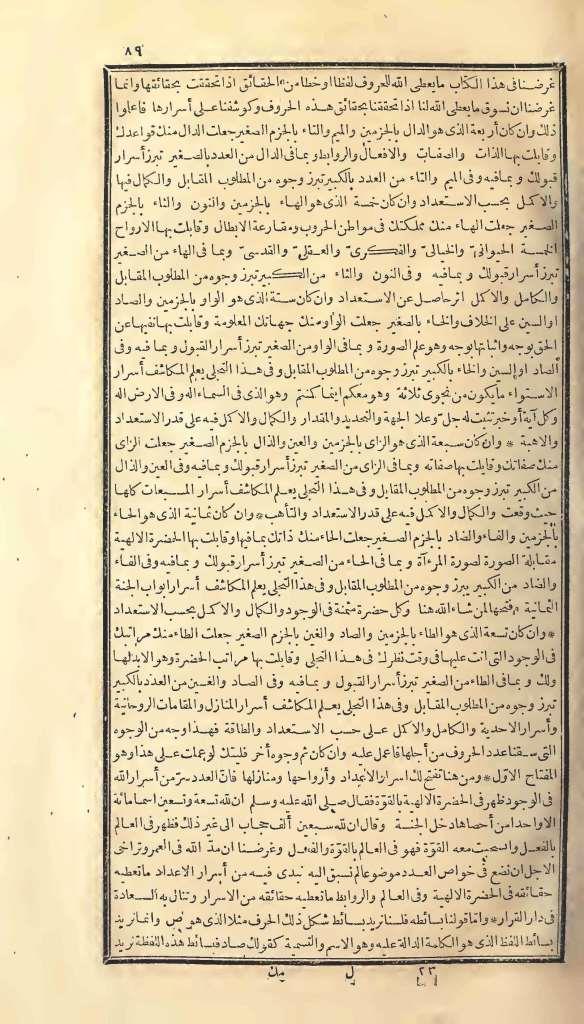 ٨٩
غرضنا فى هذا الكتاب ما يعطى الله للحروف لفظا او خطا من الحقائق اذا تحققت بحقائقها وانما
غرضنا ان نسوق ما يعطى الله لنا اذا تحققنا بحقائق هذه الحروف وكوشفنا على أسرارها فاعلموا
ذلك وان كان أربعة الذى هو الدال بالجزمين والميم والتاء بالجزم الصغير جعلت الدال منك قواعدك
وقابلت بها الذات والصفات والافعال والروابط وبما فى الدال من العدد بالصغير تبرز أسرار
قبولك وبما فيه وفى الميم والتاء من العدد بالكبير تبرز وجوه من المطلوب المقابل والكمال فيها
والاكمل بحسب الاستعداد وان كان خمسة الذى هو الهاء بالجزمين والنون والثاء بالجزم
الصغير جعلت الهاء منك مملكتك فى مواطن الحروب ومقارعة الابطال وقابلت بها الارواح
الخمسة الحيوانى والخيالى والفكرى والعقلى والقدسى وبما فى الهاء من الصغير
تبرز أسرار قبولك وبما فيه وفى النون والثاء من الكبير تبرز وجوه من المطلوب المقابل
والكامل والاكمل اثر حاصل عن الاستعداد وان كان ستة الذى هو الواو بالجزمين والصاد
او السين على الخلاف والخاء بالصغير جعلت الواو منك جهاتك المعلومة وقابلت بها نفيها عن
الحق بوجه واثباتها بوجه وهو علم الصورة وبما فى الواو من الصغير تبرز أسرار القبول وبما فيه وفى
الصاد او السين والخاء بالكبير تبرز وجوه من المطلوب المقابل وفى هذا التجلى يعلم المكاشف أسرار
الاستواء ما يكون من نجوى ثلاثة وهو معكم اينما كنتم وهو الذى فى السماء اله وفى الارض اله
وكل آية أو خبر تثبت له جل وعلا الجهة والتحديد والمقدار والكمال والاكمل فيه على قدر الاستعداد
والاهبة * وان كان سبعة الذى هو الزاى بالجزمين والعين والذال بالجزم الصغير جعلت الزاى
منك صفاتك وقابلت بها صفاته وبما فى الزاى من الصغير تبرز أسرار قبولك وبما فيه وفى العين والذال
من الكبير تبرز وجوه من المطلوب المقابل وفى هذا التجلى يعلم المكاشف أسرار المسبعات كلها
حيث وقعت والكمال والاكمل فيه على قدر الاستعداد والتأهب * وان كان ثمانية الذى هو الحاء
بالجزمين والفاء والضاد بالجزم الصغير جعلت الحاء منك ذاتك بما فيها وقابلت بها الحضرة الالهية
مقابلة الصورة لصورة المرءآة وبما فى الحاء من الصغير تبرز أسرار قبولك وبما فيه وفى الفاء
والضاد من الكبير يبرز وجوه من المطلوب المقابل وفى هذا التجلى يعلم المكاشف أسرار أبواب الجنة
الثمانية وفتحها لمن شاء الله هنا وكل حضرة مثمنة فى الوجود والكمال والاكمل بحسب الاستعداد
* وان كان تسعة الذى هو الطاء بالجزمين والصاد والغين بالجزم الصغير جعلت الطاء منك مراتبك
فى الوجود التى انت عليها فى وقت نظرك فى هذا التجلى وقابلت بها مراتب الحضرة وهو الابد لها
ولك وبما فى الطاء من الصغير تبرز أسرار القبول وبما فيه وفى الصاد والغين من العدد بالكبير
تبرز وجوه من المطلوب المقابل وفى هذا التجلى يعلم المكاشف أسرار المنازل والمقامات الروحانية
وأسرار الاحدية والكامل والاكمل على حسب الاستعداد والطاقة فهذا وجه من الوجوه
التى سقنا عدد الحروف من أجلها فاعمل عليه وان كان ثم وجوه أخر فليتك لو عملت على هذا وهو
المفتاح الاول * ومن هنا تفتح لك اسرار الاعداد وأرواحها ومنازلها فان العدد سر من أسرار الله
فى الوجود ظهر فى الحضرة الالهية بالقوة فقال صلى الله عليه وسلم ان لله تسعة وتسعين اسما مائة
الا واحدا من أحصاها دخل الجنة وقال ان لله سبعين ألف حجاب الى غير ذلك فظهر فى العالم
بالفعل وانسحبت معه القوة فهو فى العالم بالقوة والفعل وغرضنا ان مد الله فى العمر وتراخى
الاجل ان نضع فى خواص العدد موضوعا لم نسبق اليه نبدى فيه من أسرار الاعداد ما تعطيه
حقائقه فى الحضرة الالهية وفى العالم والروابط ما تعطيه حقائقه من الاسرار وتنال به السعادة
فى دار القرار * واما قولنا بسائطه فلسنا نريد بسائط شكل ذلك الحرف مثلا الذى هو ص وانما نريد
بسائط اللفظ الذى هو الكلمة الدالة عليه وهو الاسم والتسمية كقولك صاد فبسائط هذه اللفظة نريد
٢٣ ل مك